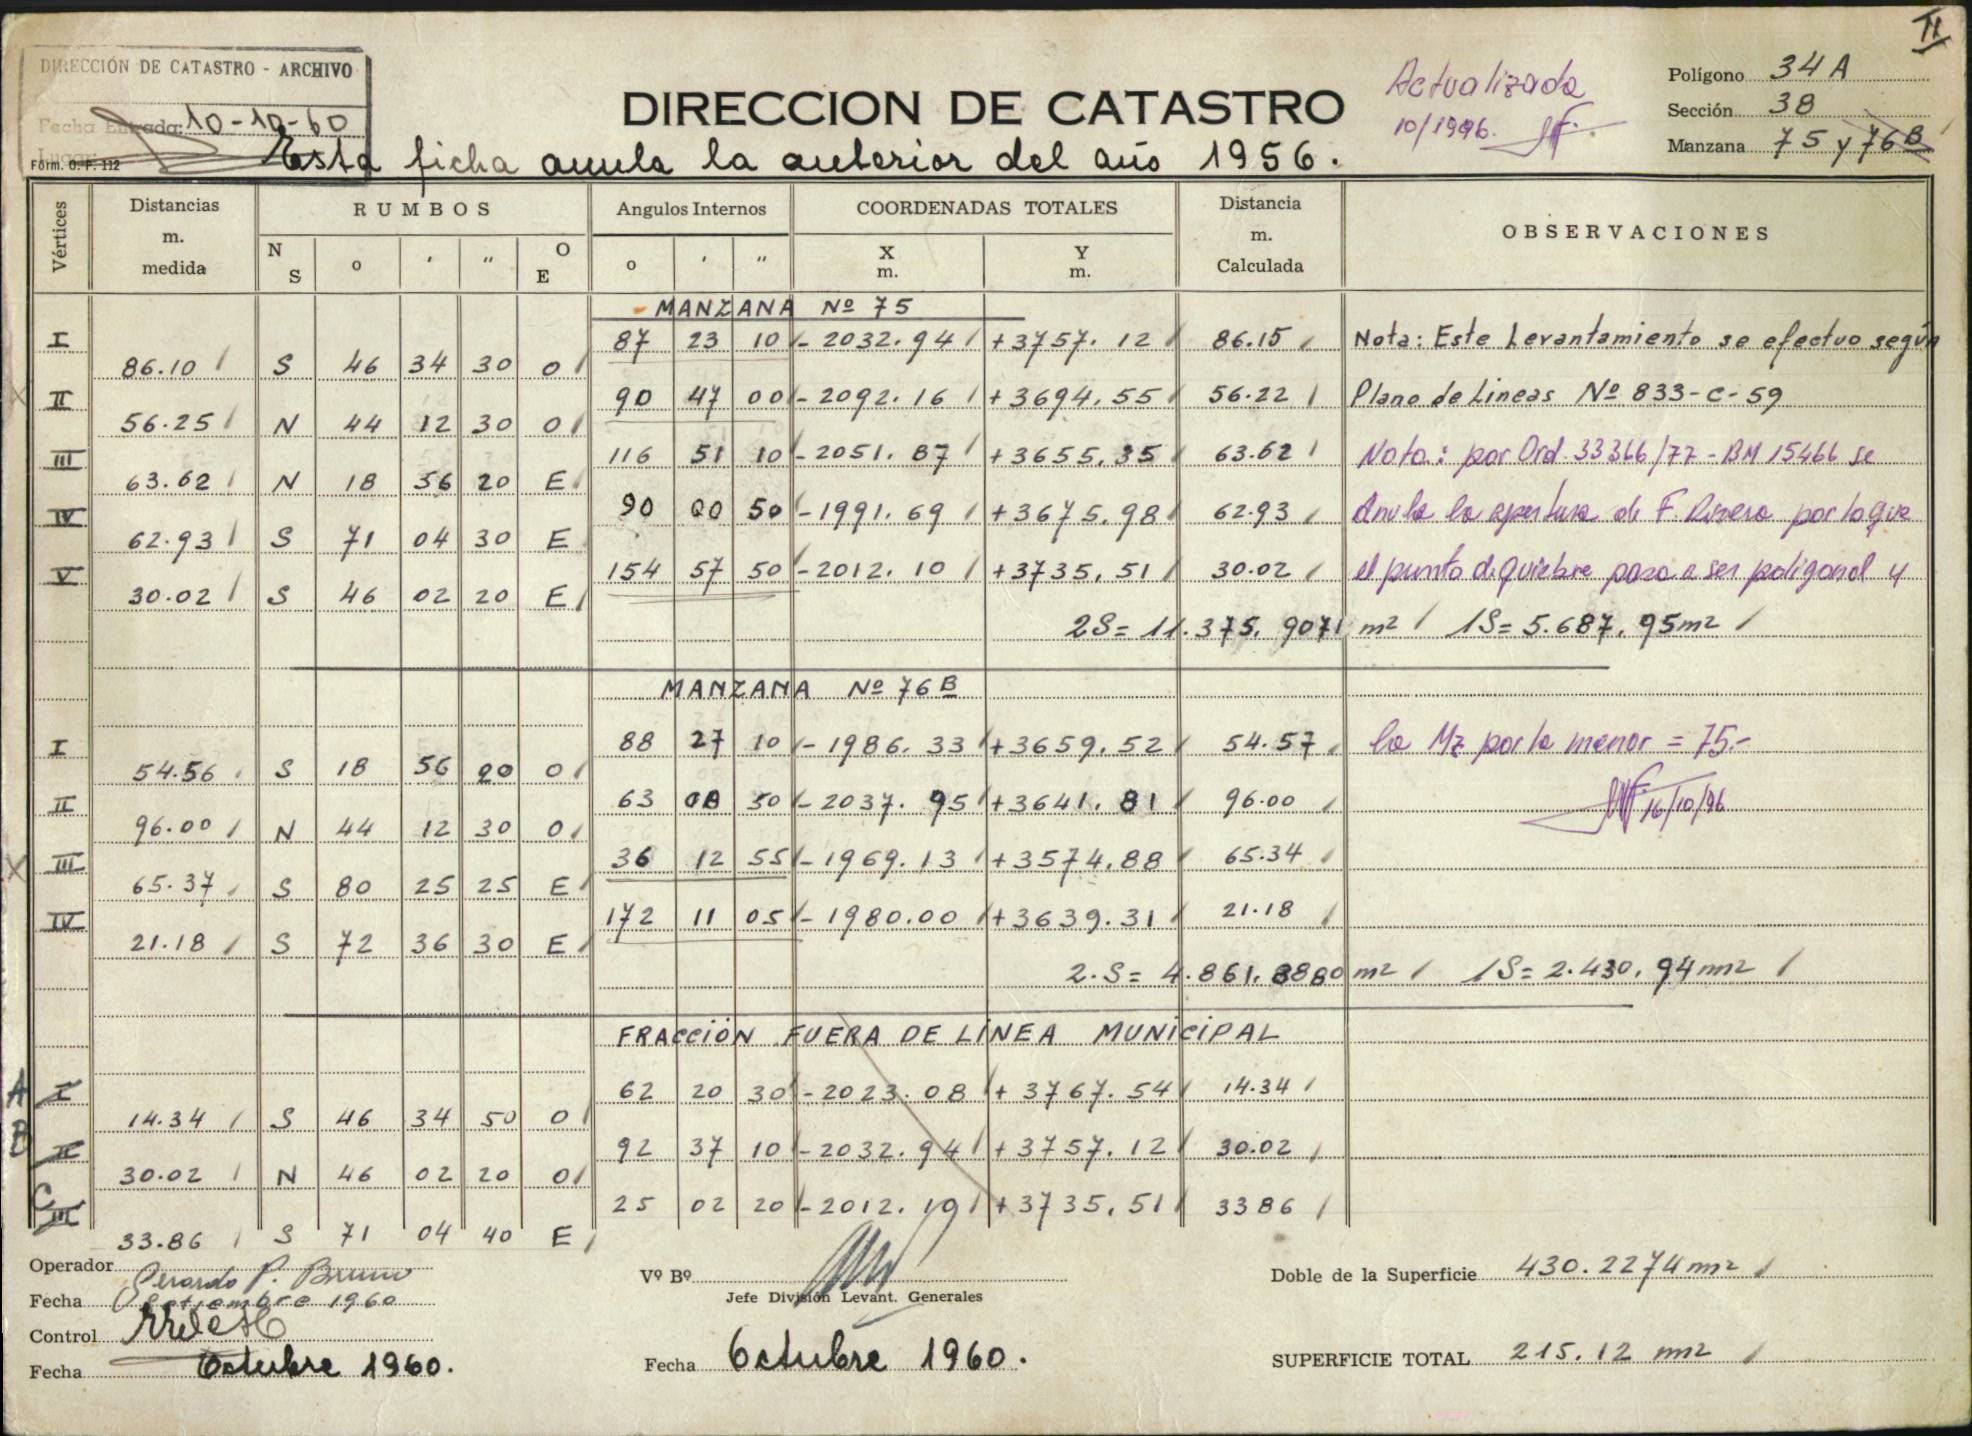 II
DIRECCIÓN DE CATASTRO - ARCHIVO
Fecha Entrada: 10-10-60
Form. O. P. 112
DIRECCION DE CATASTRO
Esta ficha anula la anterior del año 1956.
Actualizada
10/1996.
Polígono 34 A
Sección 38
Manzana 75 y 76 B
Vértices Distancias m. medida RUMBOS Angulos Internos COORDENADAS TOTALES Distancia m. Calculada OBSERVACIONES
N S o ' " O E o ' " X m. Y m.
MANZANA Nº 75
I 87 23 10 - 2032.94 +3757.12 86.15 Nota: Este Levantamiento se efectuo según
86.10 S 46 34 30 O
II 90 47 00 - 2092.16 +3694.55 56.22 Plano de Lineas Nº 833-C-59
56.25 N 44 12 30 O
III 116 51 10 - 2051.87 +3655.35 63.62 Nota: por Ord. 33366/77 - BM 15466 se
63.62 N 18 56 20 E
IV 90 00 50 - 1991.69 +3675.98 62.93 Anula la apertura de F. Rivera por lo que
62.93 S 71 04 30 E
V 154 57 50 - 2012.10 +3735.51 30.02 el punto de quiebre pasa a ser poligonal y
30.02 S 46 02 20 E
2S= 11.375.9071 m2 1S= 5.687,95m2
MANZANA Nº 76 B
I 88 27 10 - 1986.33 +3659.52 54.57 la Mz por la menor = 75.-
54.56 S 18 56 20 O
II 63 08 50 - 2037.95 +3641.81 96.00 16/10/96
96.00 N 44 12 30 O
III 36 12 55 - 1969.13 +3574.88 65.34
65.37 S 80 25 25 E
IV 172 11 05 - 1980.00 +3639.31 21.18
21.18 S 72 36 30 E
2.S= 4.861.8880 m2 1S= 2.430,94 m2
FRACCIÓN FUERA DE LÍNEA MUNICIPAL
A I 62 20 30 - 2023.08 +3767.54 14.34
14.34 S 46 34 50 O
B II 92 37 10 - 2032.94 +3757.12 30.02
30.02 N 46 02 20 O
C III 25 02 20 - 2012.10 +3735.51 33 86
33.86 S 71 04 40 E
Operador Gerardo P. Bruno
Fecha Septiembre 1960
Control
Fecha Octubre 1960.
Vº Bº
Jefe División Levant. Generales
Fecha Octubre 1960.
Doble de la Superficie 430.2274 m2
SUPERFICIE TOTAL 215.12 m2